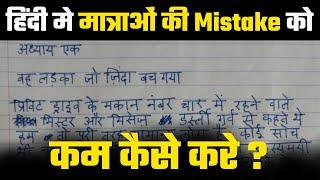 हिंदी मे मात्राओं की Mistake को
अध्याय एक
वह लड़का जो ज़िंदा बच गया
प्रिविट ड्राइव के मकान नंबर चार में रहने वाले
मिस्टर और मिसेज़ डर्स्ली गर्व से कहते थे
कोई सोच
कम कैसे करे ?